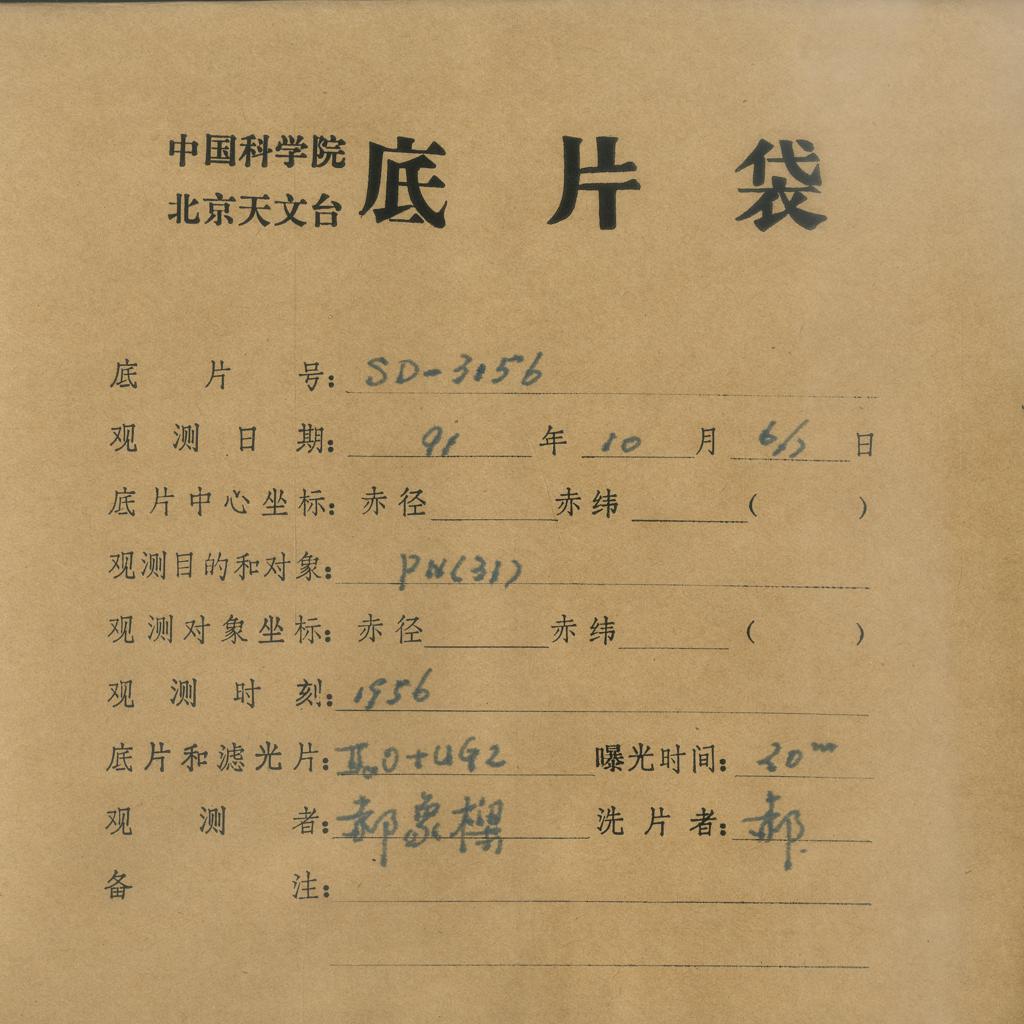 中国科学院
北京天文台
底片袋
底片号: SD-3156
观测日期: 91 年 10 月 6/7 日
底片中心坐标: 赤径 赤纬 ( )
观测目的和对象: PN(31)
观测对象坐标: 赤径 赤纬 ( )
观测时刻: 1956
底片和滤光片: IIaO+UG2 曝光时间: 20m
观测者: 郝象樑 洗片者: 郝
备注: